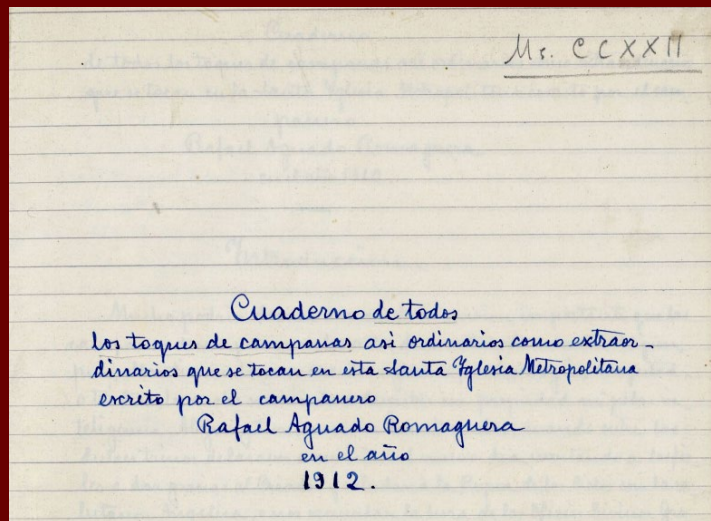 Ms. CCXXII
Cuaderno de todos
los toques de campanas asi ordinarios como extraor-
dinarios que se tocan en esta Santa Yglesia Metropolitana
escrito por el campanero
Rafael Aguado Romaguera
en el año
1912.